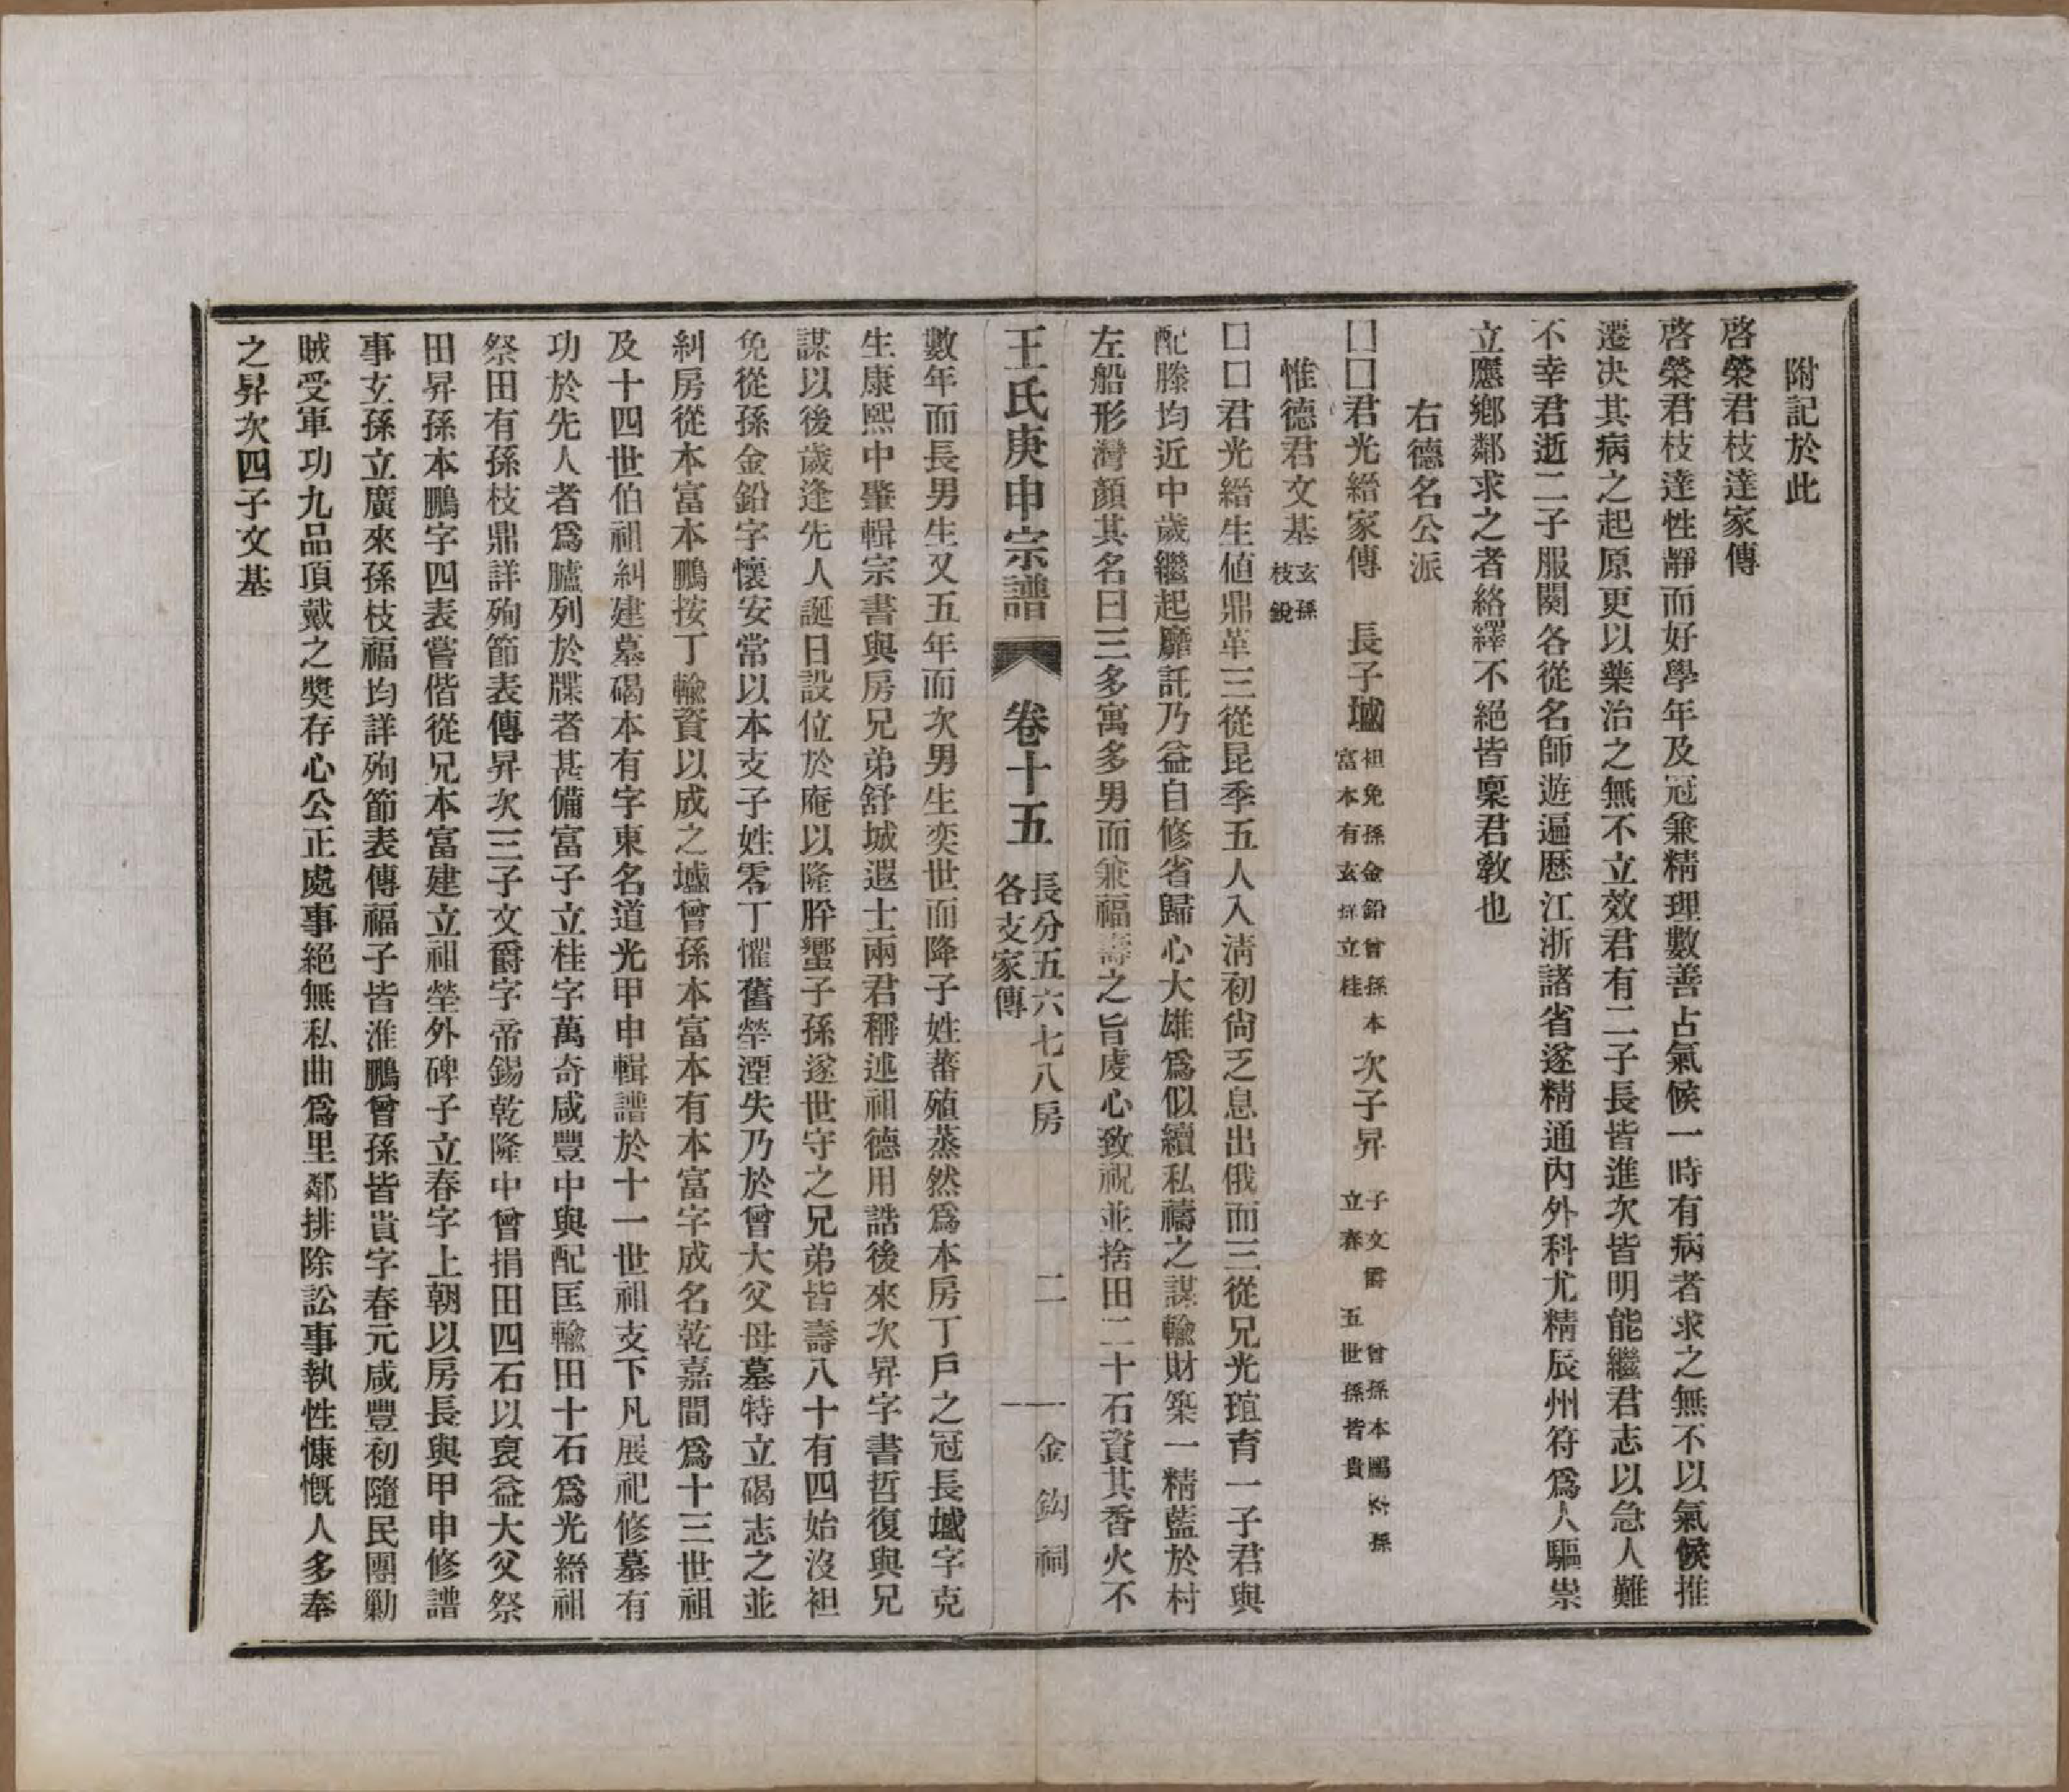 附記於此
啓榮君枝達家傳
啓榮君枝達性靜而好學年及冠兼精理數善占氣候一時有病者求之無不以氣候推
遷決其病之起原更以藥治之無不立效君有二子長皆進次皆明能繼君志以急人難
不幸君逝二子服闋各從名師遊遍歷江浙諸省遂精通內外科尤精辰州符爲人驅祟
立應鄉鄰求之者絡繹不絕皆稟君敎也
右德名公派
囗囗君光縉家傳 長子壚 祖免孫金鉛曾孫本富本有玄孫立桂 次子昇 子文爵 曾孫本鵬 孫立春 五世孫皆貴
惟德君文基 玄孫枝銳
囗囗君光縉生値鼎革三從昆季五人入淸初尙乏息出俄而三從兄光瑄育一子君與
配滕均近中歲繼起靡託乃益自修省歸心大雄爲似續私禱之謀輸財築一精藍於村
左船形灣顏其名曰三多寓多男而兼福壽之旨虔心致祝並捨田二十石資其香火不
王氏庚申宗譜 卷十五 長分五六七八房各支家傳 二 金鈎祠
數年而長男生又五年而次男生奕世而降子姓蕃殖蒸然爲本房丁戶之冠長壚字克
生康熙中肇輯宗書與房兄弟舒城遐士兩君稱述祖德用誥後來次昇字書哲復與兄
謀以後歲逢先人誕日設位於庵以隆肸蠁子孫遂世守之兄弟皆壽八十有四始沒袒
免從孫金鉛字懷安常以本支子姓零丁懼舊塋湮失乃於曾大父母墓特立碣志之並
糾房從本富本鵬按丁輸資以成之壚曾孫本富本有本富字成名乾嘉間爲十三世祖
及十四世伯祖糾建墓碣本有字東名道光甲申輯譜於十一世祖支下凡展祀修墓有
功於先人者爲臚列於牒者甚備富子立桂字萬奇咸豐中與配匡輸田十石爲光縉祖
祭田有孫枝鼎詳殉節表傳昇次三子文爵字帝錫乾隆中曾捐田四石以裒益大父祭
田昇孫本鵬字四表嘗偕從兄本富建立祖塋外碑子立春字上朝以房長與甲申修譜
事玄孫立廣來孫枝福均詳殉節表傳福子皆淮鵬曾孫皆貴字春元咸豐初隨民團勦
賊受軍功九品頂戴之獎存心公正處事絕無私曲爲里鄰排除訟事執性慷慨人多奉
之昇次四子文基